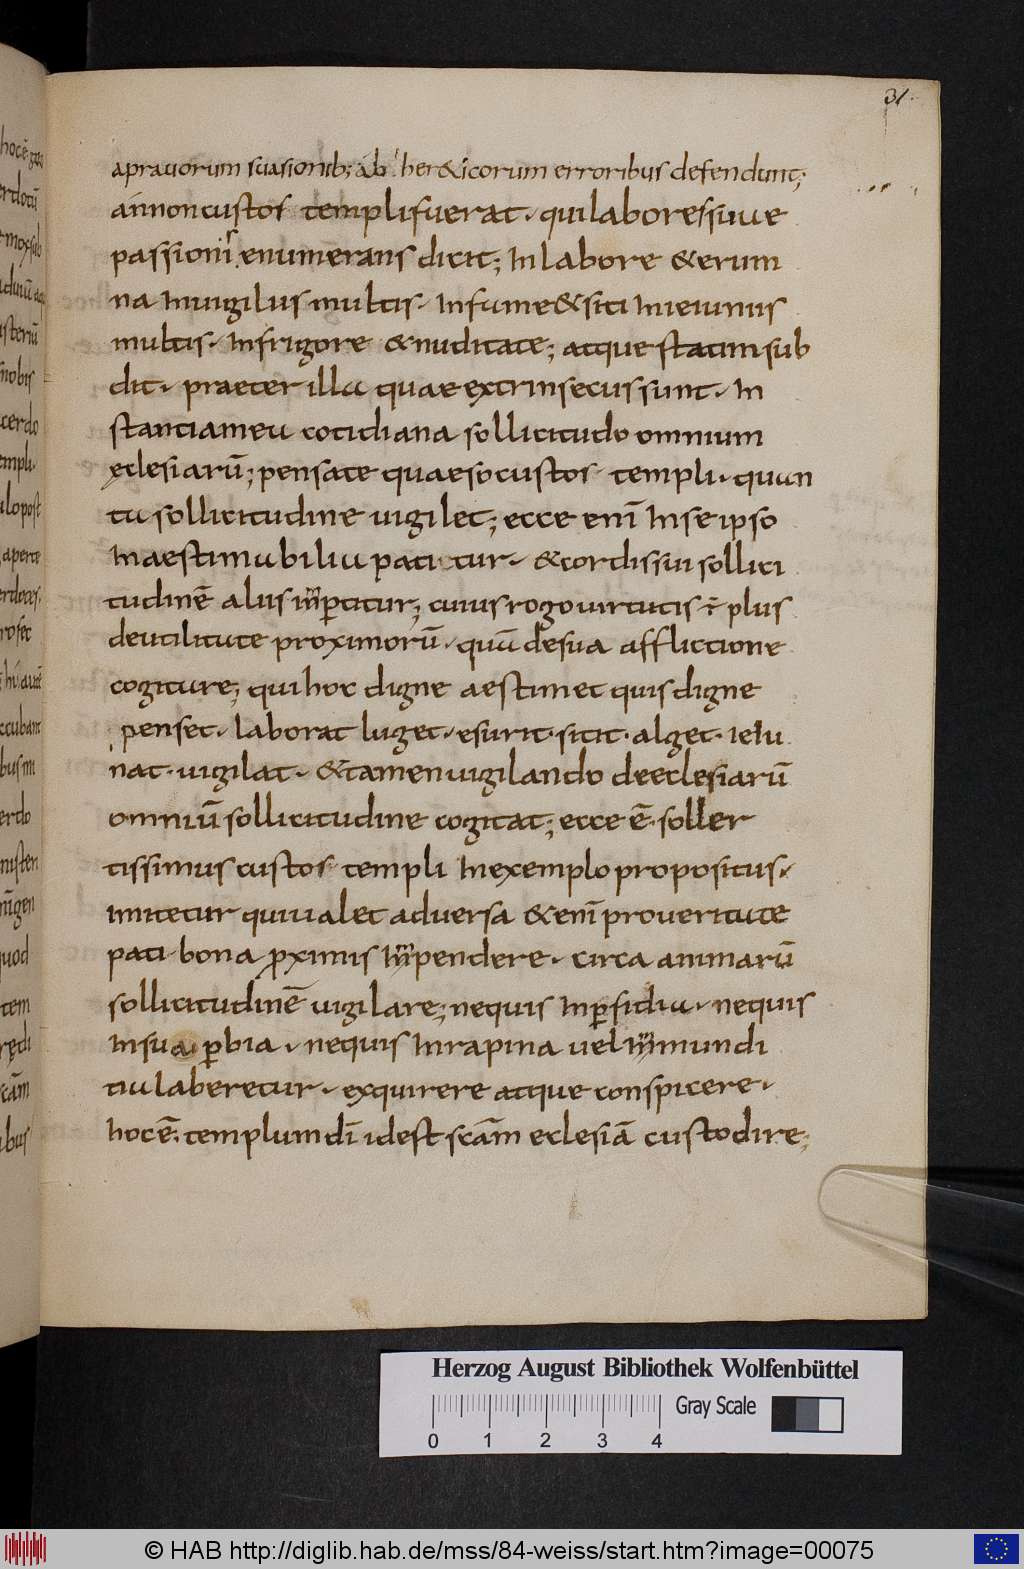 31.
aprauorum suasionib; ab her&icorum erroribus defendunt;
annoncustos templifuerat· quilaboressuue
passioni enumerans dicit; Inlabore &erum
na Inuigiliis multis· Infame&siti Inieiuniis
multis· Infrigore &nuditate; atque statimsub
dit· praeter illa quae extrinsecussunt· In
stantiamea cotidiana sollicitudo omnium
ęclesiarū; pensate quaesocustos templi· quan
ta sollicitudine uigilet; ecce enī Inseipso
Inaestimabilia pati tur· &cordissui sollici
tudinē aliis impertitur; cuiusrogouirtutis ē plus
deutilitate proximorū· quā desua afflictione
cogitare; quihoc digne aestimet quisdigne
penset· laborat luget· esurit· sitit· alget· ieiu
nat· uigilat· &tamenuigilando deeclesiarū
omniū sollicitudine cogitat; ecce ē· soller
tissimus custos templi Inexemplo propositus·
imitetur quiualet aduersa &enī proueritate
pati· bona proximis Impendere· circa animarū
sollicitudinē uigilare; nequis Inperfidia· nequis
Insuaperbia· nequis Inrapina uelImmundi
tia laberetur· exquirere atque conspicere·
hocē; templum dī idest scām eclesiā custodire;
Herzog August Bibliothek Wolfenbüttel
Gray Scale
0 1 2 3 4
© HAB http://diglib.hab.de/mss/84-weiss/start.htm?image=00075